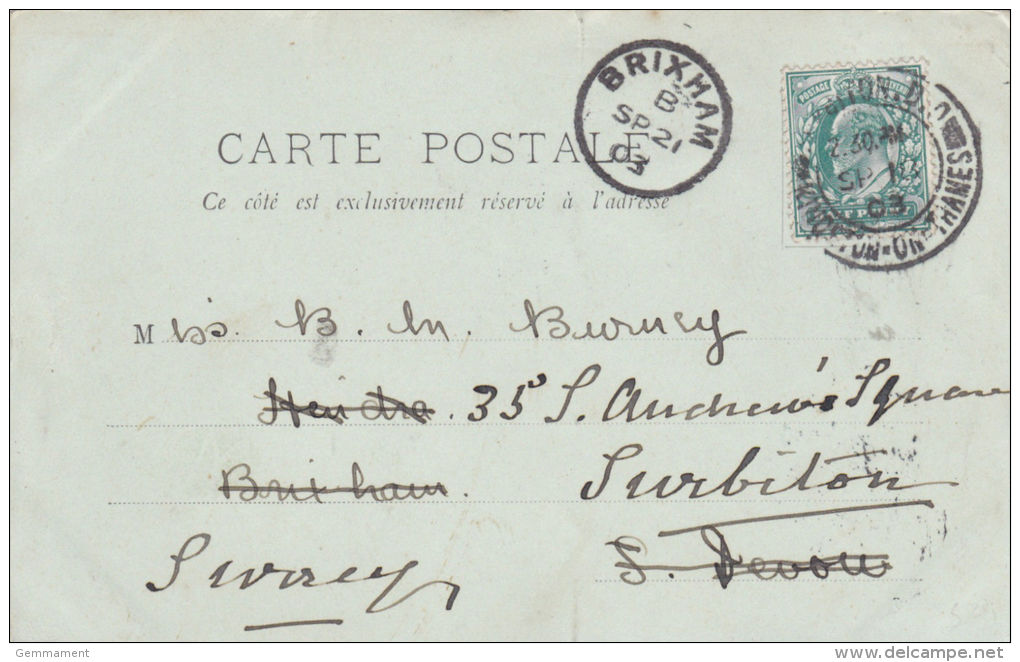 BRIXHAM
B
SP 21
03
POSTAGE
2.30.PM
SP
03
-ON-THAMES
CARTE POSTALE
Ce côté est exclusivement réservé à l'adresse
Miss. B. M. Burney
Hendra. 35 S. Andrew's Square
Brixham. Surbiton
Surrey S. Devon
Gemmament
delcampe.net